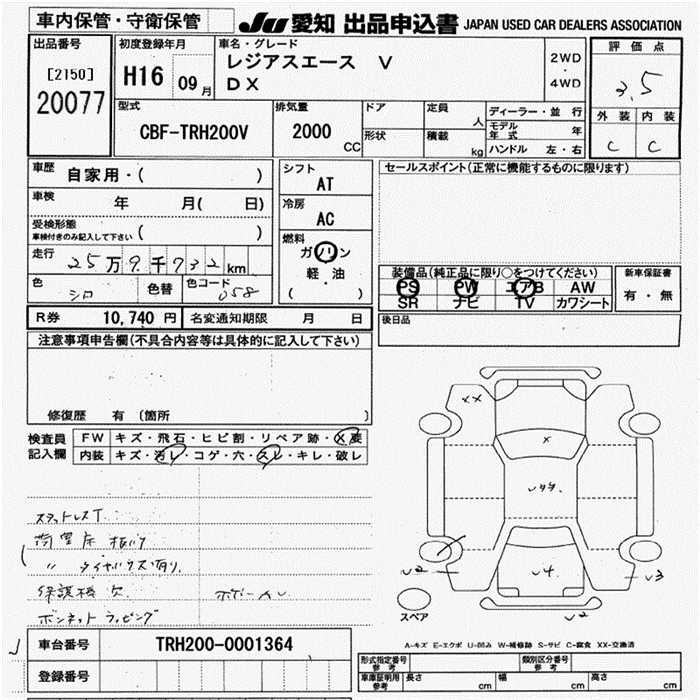 車内保管・守衛保管
JU 愛知 出品申込書 JAPAN USED CAR DEALERS ASSOCIATION
出品番号
[2150]
20077
初度登録年月
H16 09月
車名・グレード
レジアスエース V
DX
2WD
・
4WD
評価点
3.5
外装 内装
C C
型式
CBF-TRH200V
排気量
2000
CC
ドア
形状
定員
人
積載
kg
ディーラー・並行
モデル年式 年
ハンドル 左・右
車歴 自家用・( )
車検 年 月( 日)
受検形態
車検付きのみ記入して下さい ( )
走行 25万9千732km
色 シロ 色替 色コード 058
シフト
AT
冷房
AC
燃料
ガソリン
軽・油
( )
セールスポイント(正常に機能するものに限ります)
装備品(純正品に限り○をつけてください)
PS PW エアB AW
SR ナビ TV カワシート
新車保証書
有・無
後日品
R券 10,740円 名変通知期限 月 日
注意事項申告欄(不具合内容等は具体的に記入して下さい)
修復歴 有 (箇所 )
検査員
記入欄
FW キズ・飛石・ヒビ割・リペア跡・X要
内装 キズ・汚レ・コゲ・穴・スレ・キレ・破レ
スタットレスT
荷室床
〃 タイヤハウス有り
保護機 欠
ボンネットラッピング
XX
X
U2
U4
U3
U2
スペア
A-キズ E-エクボ U-凹み W-補修跡 S-サビ C-腐食 XX-交換済
車台番号 TRH200-0001364
登録番号
形式指定番号
参考
類別区分番号
参考
車庫証明用
参考
長さ cm 幅 cm 高さ cm